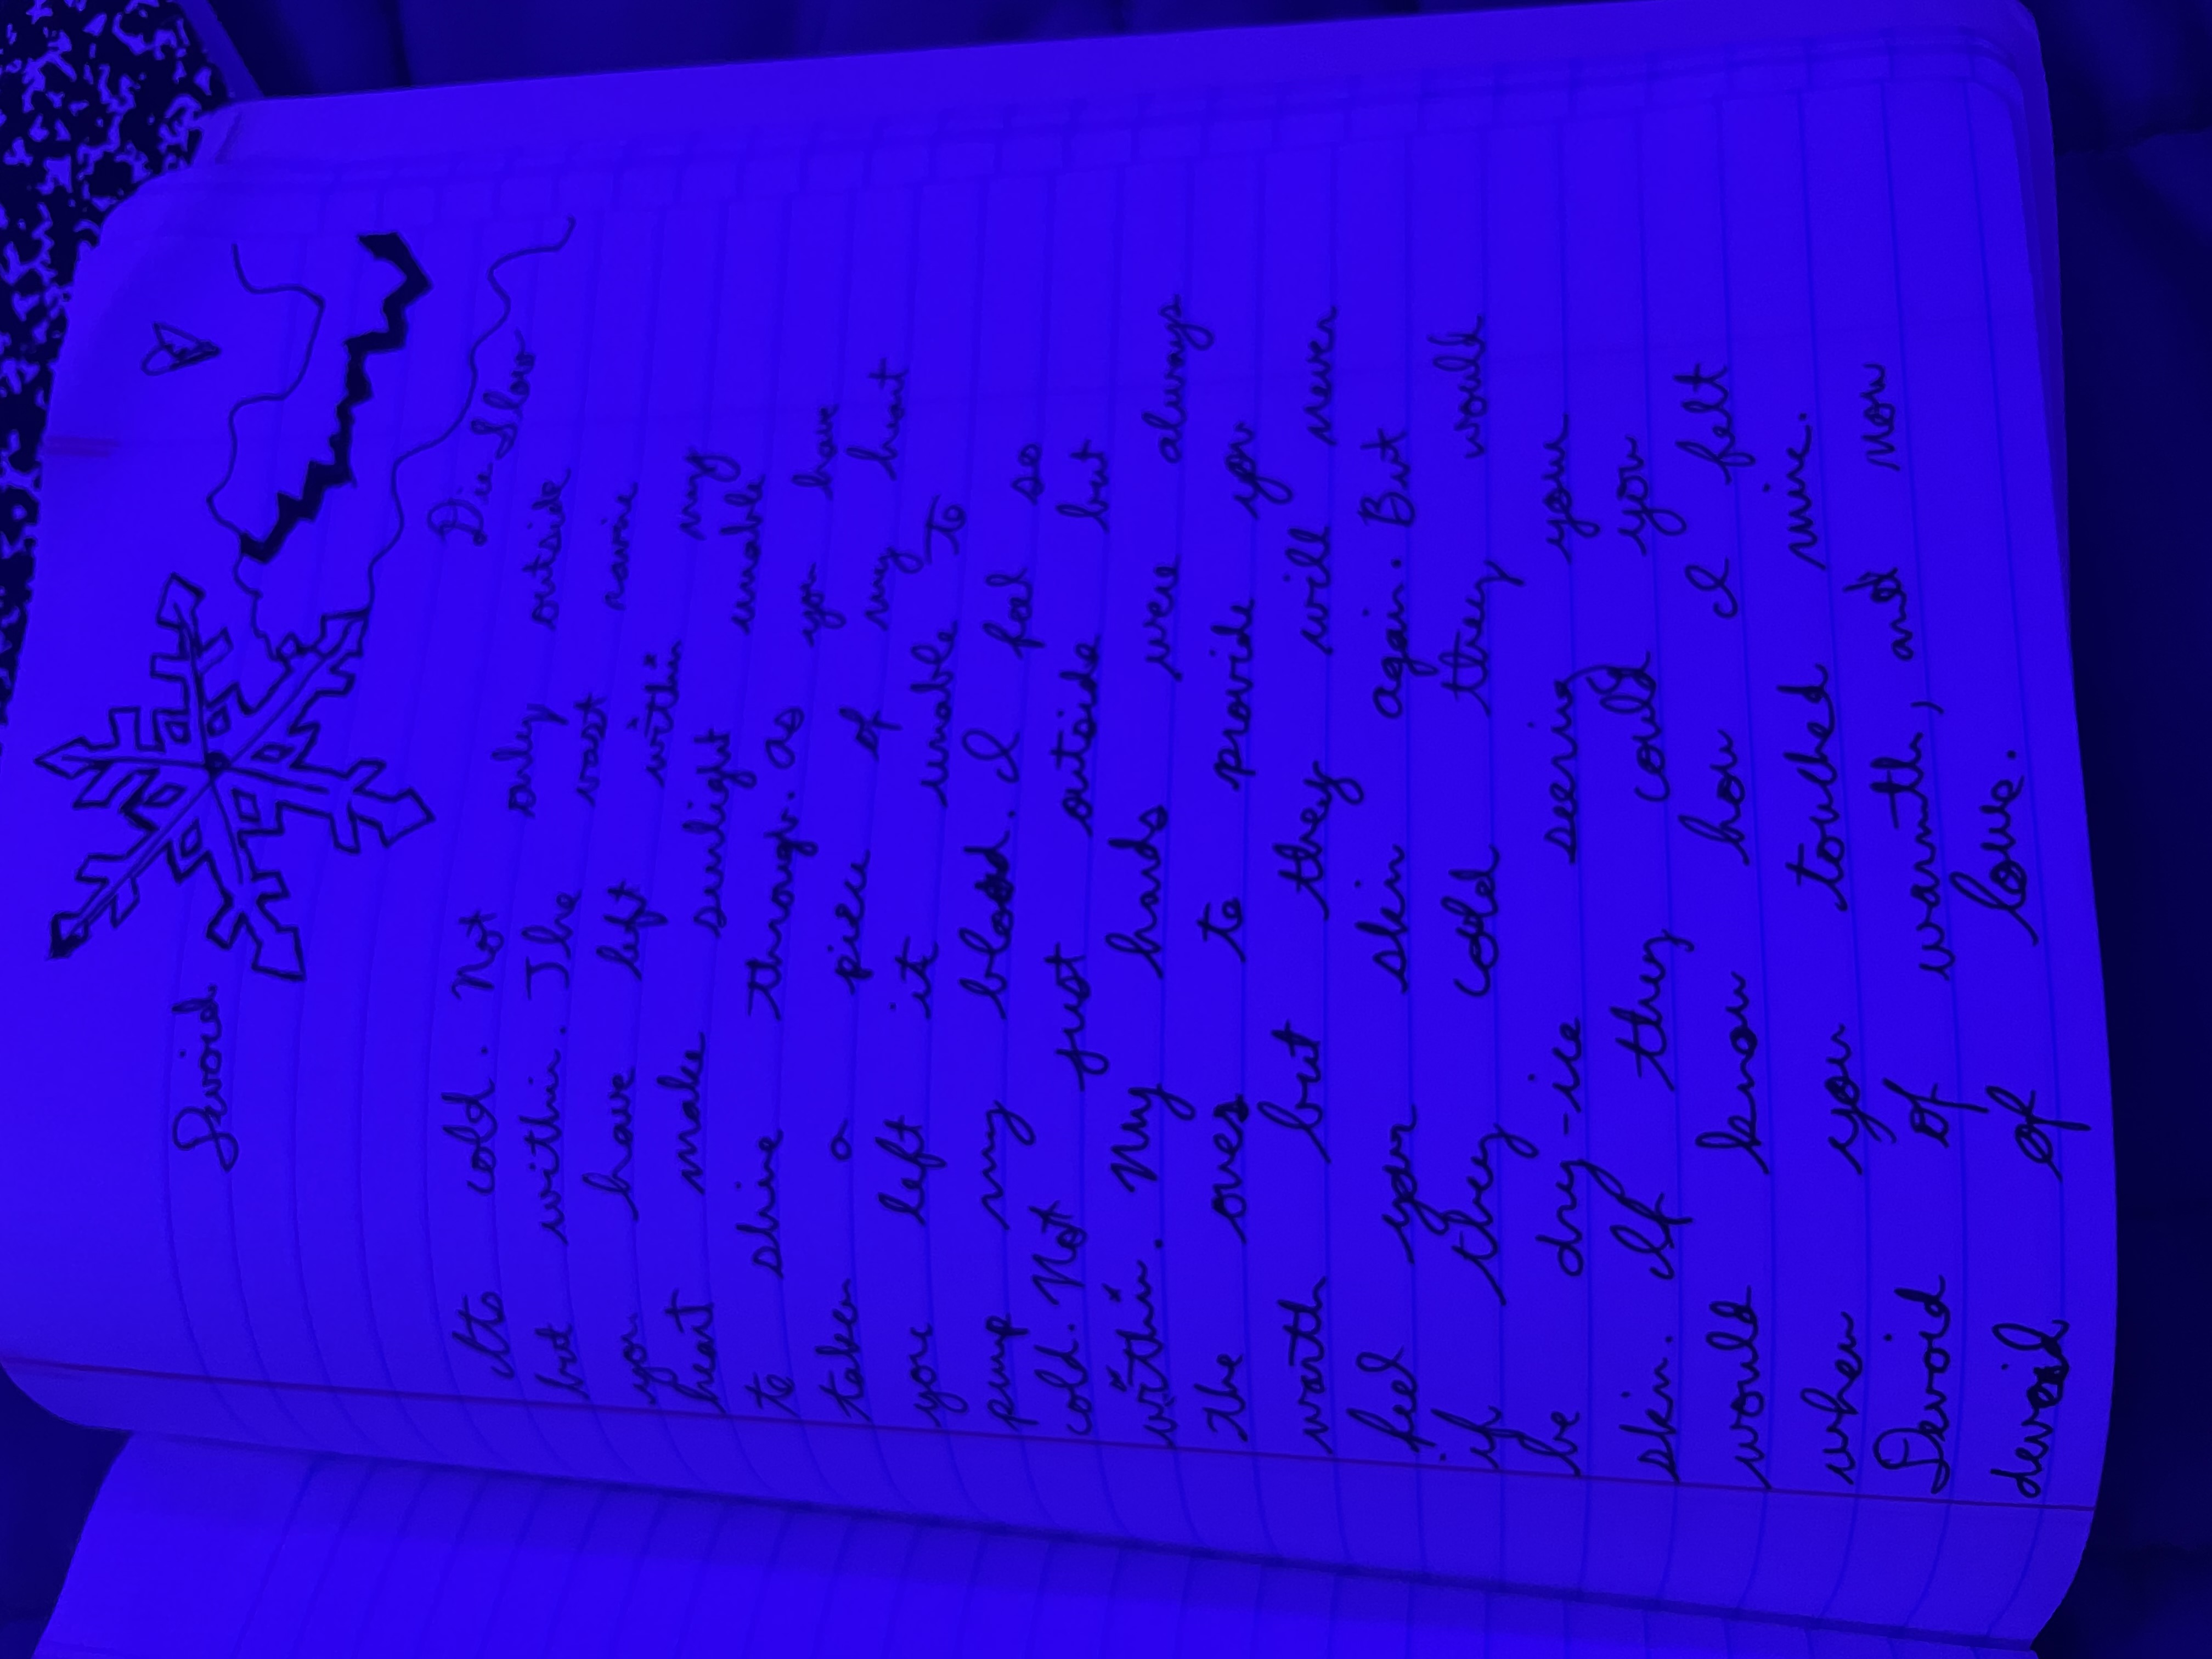 Devoid
Die Slow
Its cold. Not only outside
but within. The vast ravine
you have left within my
heart make sunlight unable
to shine through. As you have
taken a piece of my heart
you left it unable to
pump my blood. I feel so
cold. Not just outside but
within. My hands were always
the ones to provide you
warth but they will never
feel your skin again. But
if they could they would
be dry-ice seering your
skin. If they could you
would know how I felt
when you touched mine.
Devoid of warmth, and now
devoid of love.